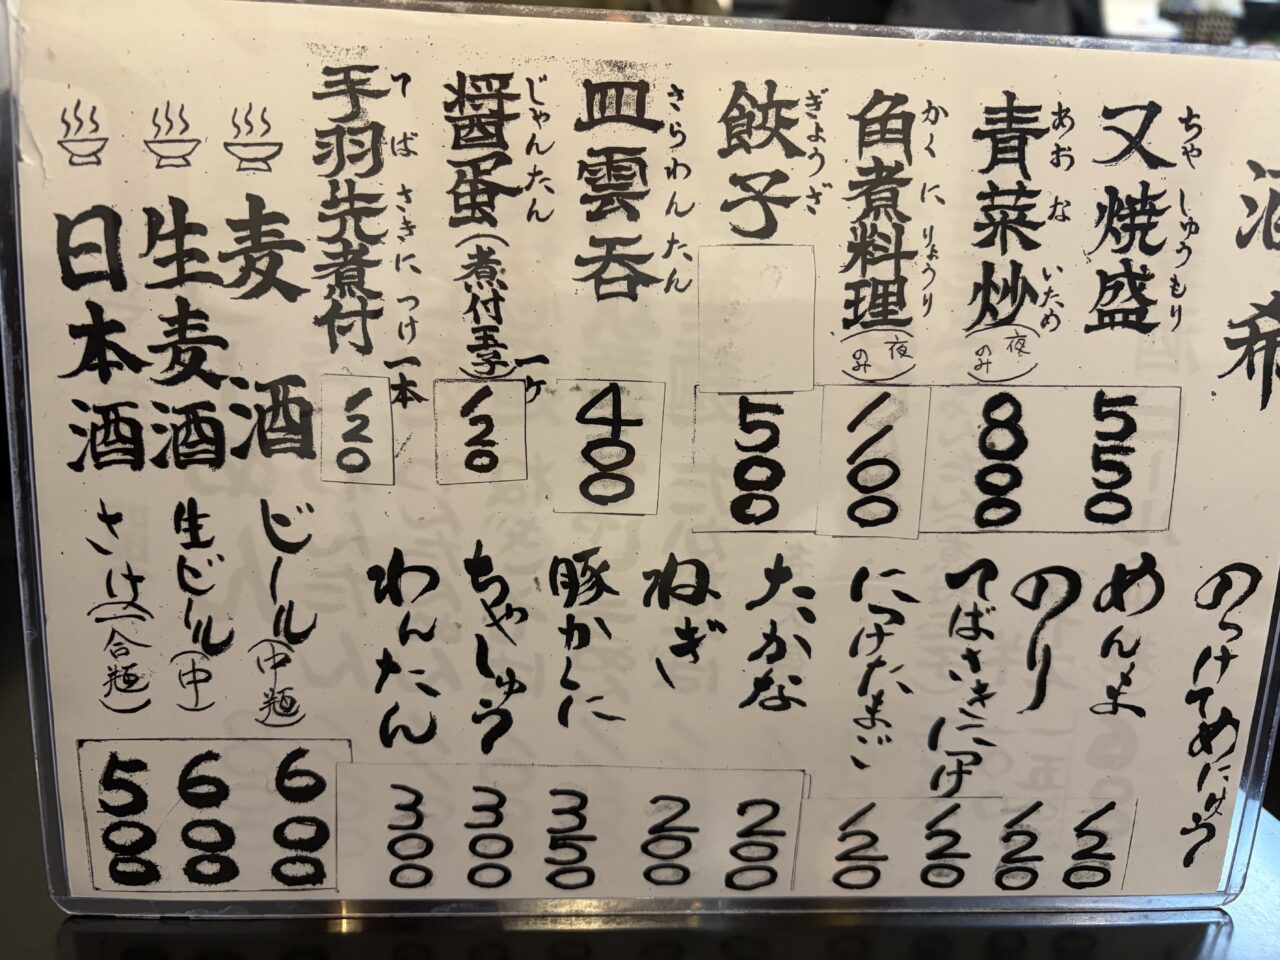 酒 希
又焼盛 ちゃしゅうもり 550
青菜炒 あおないため (夜のみ) 800
角煮料理 かくにりょうり (夜のみ) 1100
餃子 ぎょうざ 500
皿雲呑 さらわんたん 400
醤蛋 じゃんたん (煮付玉子) 一ヶ 120
手羽先煮付 てばさきにつけ 一本 120
のっけてめにゅう
めんま 120
のり 120
てばさきにつけ 120
につけたまご 120
たかな 200
ねぎ 200
豚かくに 350
ちゃしゅう 300
わんたん 300
麦酒 ビール (中瓶) 600
生麦酒 生ビール (中) 600
日本酒 さけ (一合瓶) 500